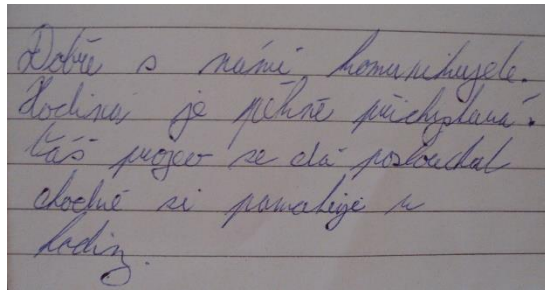 Dobře s námi komunikujete.
Hodina je pěkně přichystaná.
Váš projev se dá poslouchat
si pamatuje z
hodiny.